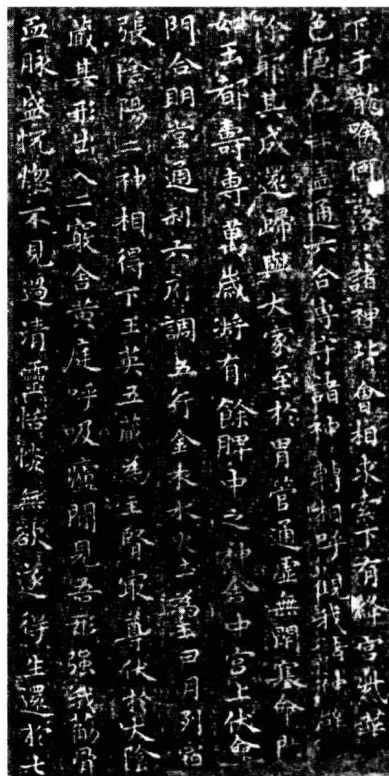 下于嚨喉何落〻諸神皆會相求索下有絳宮紫華
色隱在華蓋通六合專守諸神轉相呼觀我諸神辟
除耶其成還歸與大家至於胃管通虛無閉塞命門
如玉都壽專萬歲將有餘脾中之神舍中宮上伏命
門合明堂通利六府調五行金木水火土為王日月列宿
張陰陽二神相得下玉英五藏為主腎最尊伏於大陰
藏其形出入二竅舍黃庭呼吸廬間見吾形強我筋骨
血脉盛恍惚不見過清靈恬惔無欲遂得生還於七